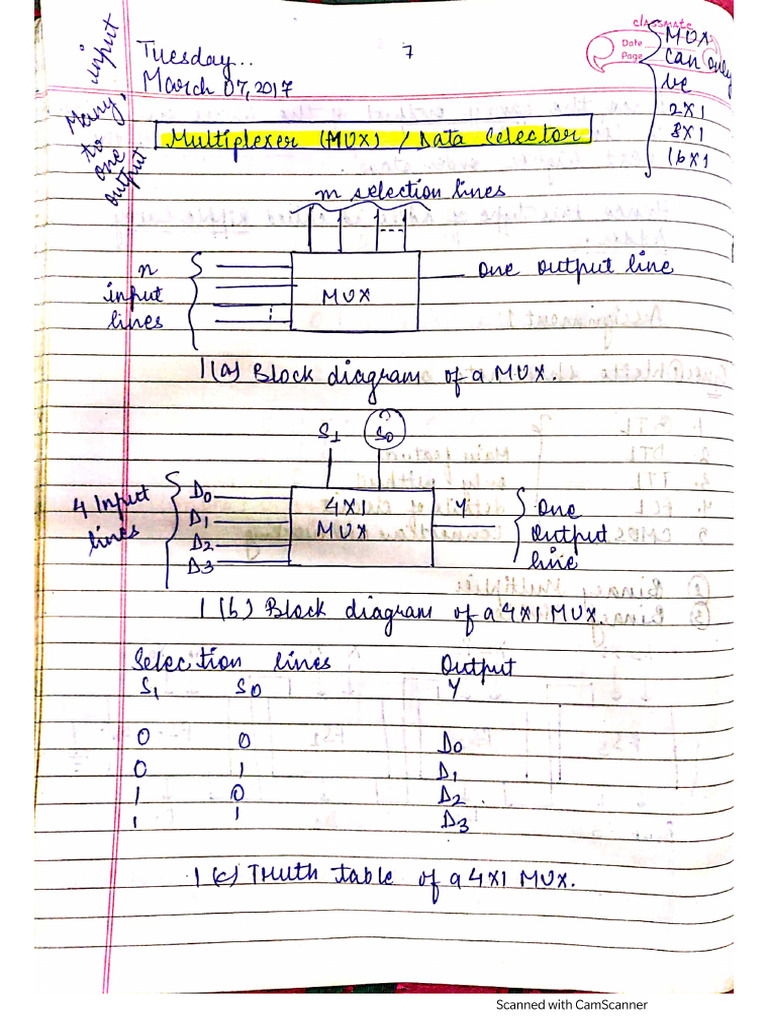 classmate
Date
Page
Tuesday..
March 07, 2017
7
Many input
to
one
output
MUX
can only
be
2X1
8X1
16X1
Multiplexer (MUX) / Data Selector
m selection lines
n
input
lines
MUX
One output line
1(a) Block diagram of a MUX.
S1 S0
4 Input
lines
D0
D1
D2
D3
4X1
MUX
Y
One
output
line
1(b) Block diagram of a 4X1 MUX.
Selection lines Output
S1 S0 Y
0 0 D0
0 1 D1
1 0 D2
1 1 D3
1(c) Truth table of a 4X1 MUX.
Scanned with CamScanner